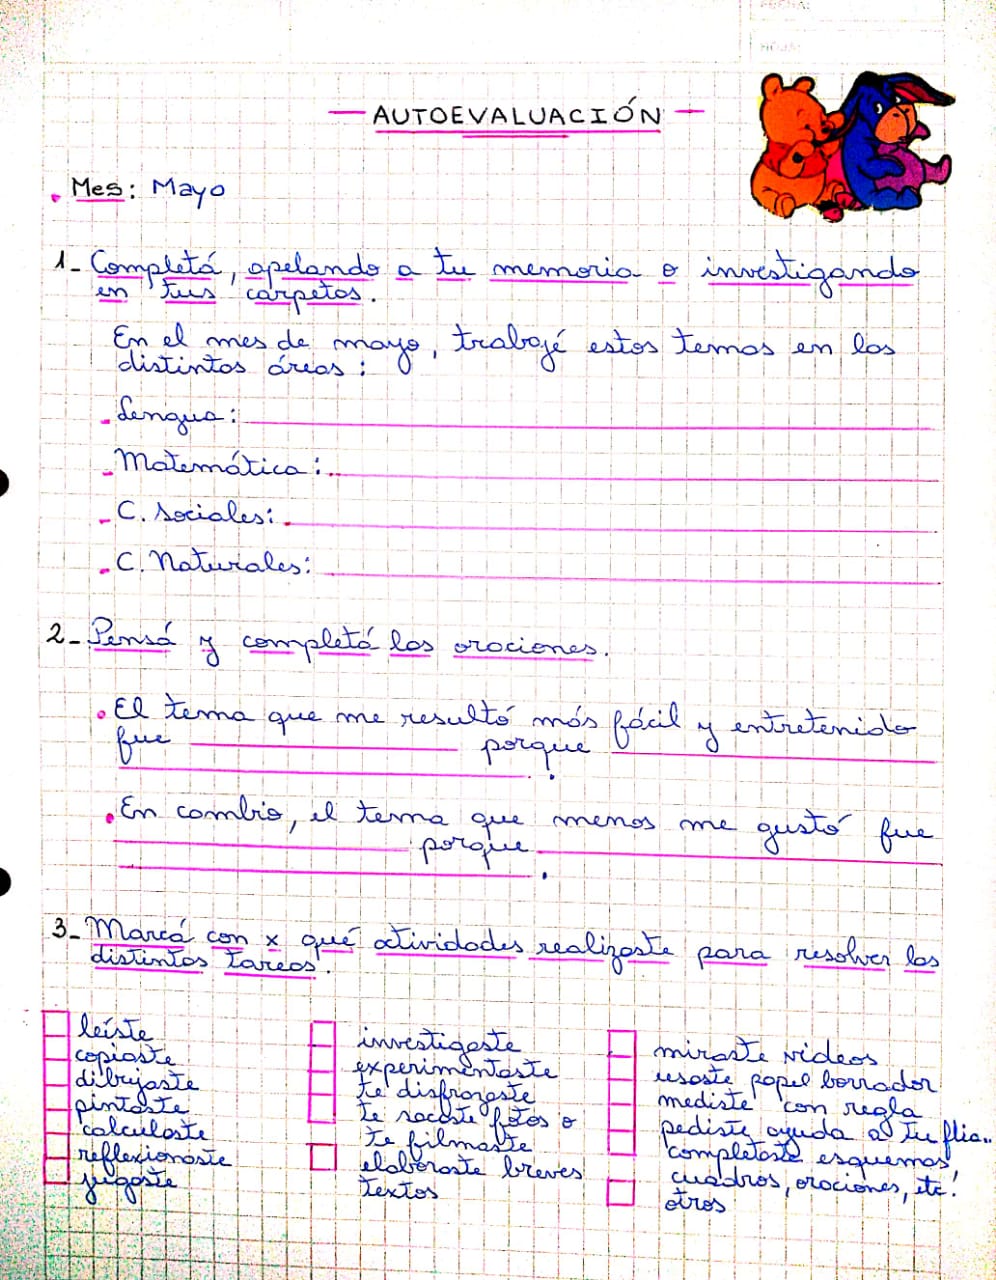 AUTOEVALUACIÓN
Mes: Mayo
1- Completá, apelando a tu memoria o investigando
en tus carpetas.
En el mes de mayo, trabajé estos temas en las
distintas áreas:
Lengua:
Matemática:
C. Sociales:
C. Naturales:
2- Pensá y completá las oraciones.
El tema que me resultó más fácil y entretenido
fue porque
.
En cambio, el tema que menos me gustó fue
porque
.
3- Marcá con x qué actividades realizaste para resolver las
distintas tareas.
leíste
copiaste
dibujaste
pintaste
calculaste
reflexionaste
jugaste
investigaste
experimentaste
te disfrazaste
te sacaste fotos o
te filmaste
elaboraste breves
textos
miraste videos
usaste papel borrador
mediste con regla
pediste ayuda a tu flia..
completaste esquemas,
cuadros, oraciones, etc.
otros